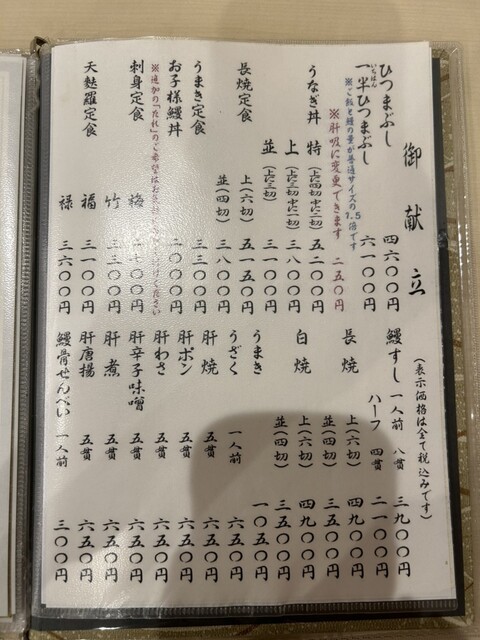 御献立
ひつまぶし 四六〇〇円
一半ひつまぶし 六一〇〇円
いちはん
※ご飯と鰻の量が普通サイズの1.5倍です
※肝吸に変更できます 二五〇円
うなぎ丼 特(上四切中二切) 五二〇〇円
上(上三切中一切) 三八〇〇円
並(上三切) 三一〇〇円
長焼定食 上(六切) 五一五〇円
並(四切) 三八〇〇円
うまき定食 三三〇〇円
お子様鰻丼 二〇〇〇円
※追加の「たれ」のご希望はお気軽に
ください
刺身定食 梅 二七〇〇円
竹 三三〇〇円
天麩羅定食 福 三一〇〇円
禄 三六〇〇円
(表示価格は全て税込みです)
鰻すし 一人前 八貫 三九〇〇円
ハーフ 四貫 二一〇〇円
長焼 上(六切) 四九〇〇円
並(四切) 三五〇〇円
白焼 上(六切) 四九〇〇円
並(四切) 三五〇〇円
うまき 一〇五〇円
うざく 一人前 六五〇円
肝焼 五貫 六五〇円
肝ポン 五貫 六五〇円
肝わさ 五貫 六五〇円
肝辛子味噌 五貫 六五〇円
肝煮 五貫 六五〇円
肝唐揚 五貫 六五〇円
鰻骨せんべい 一人前 三〇〇円